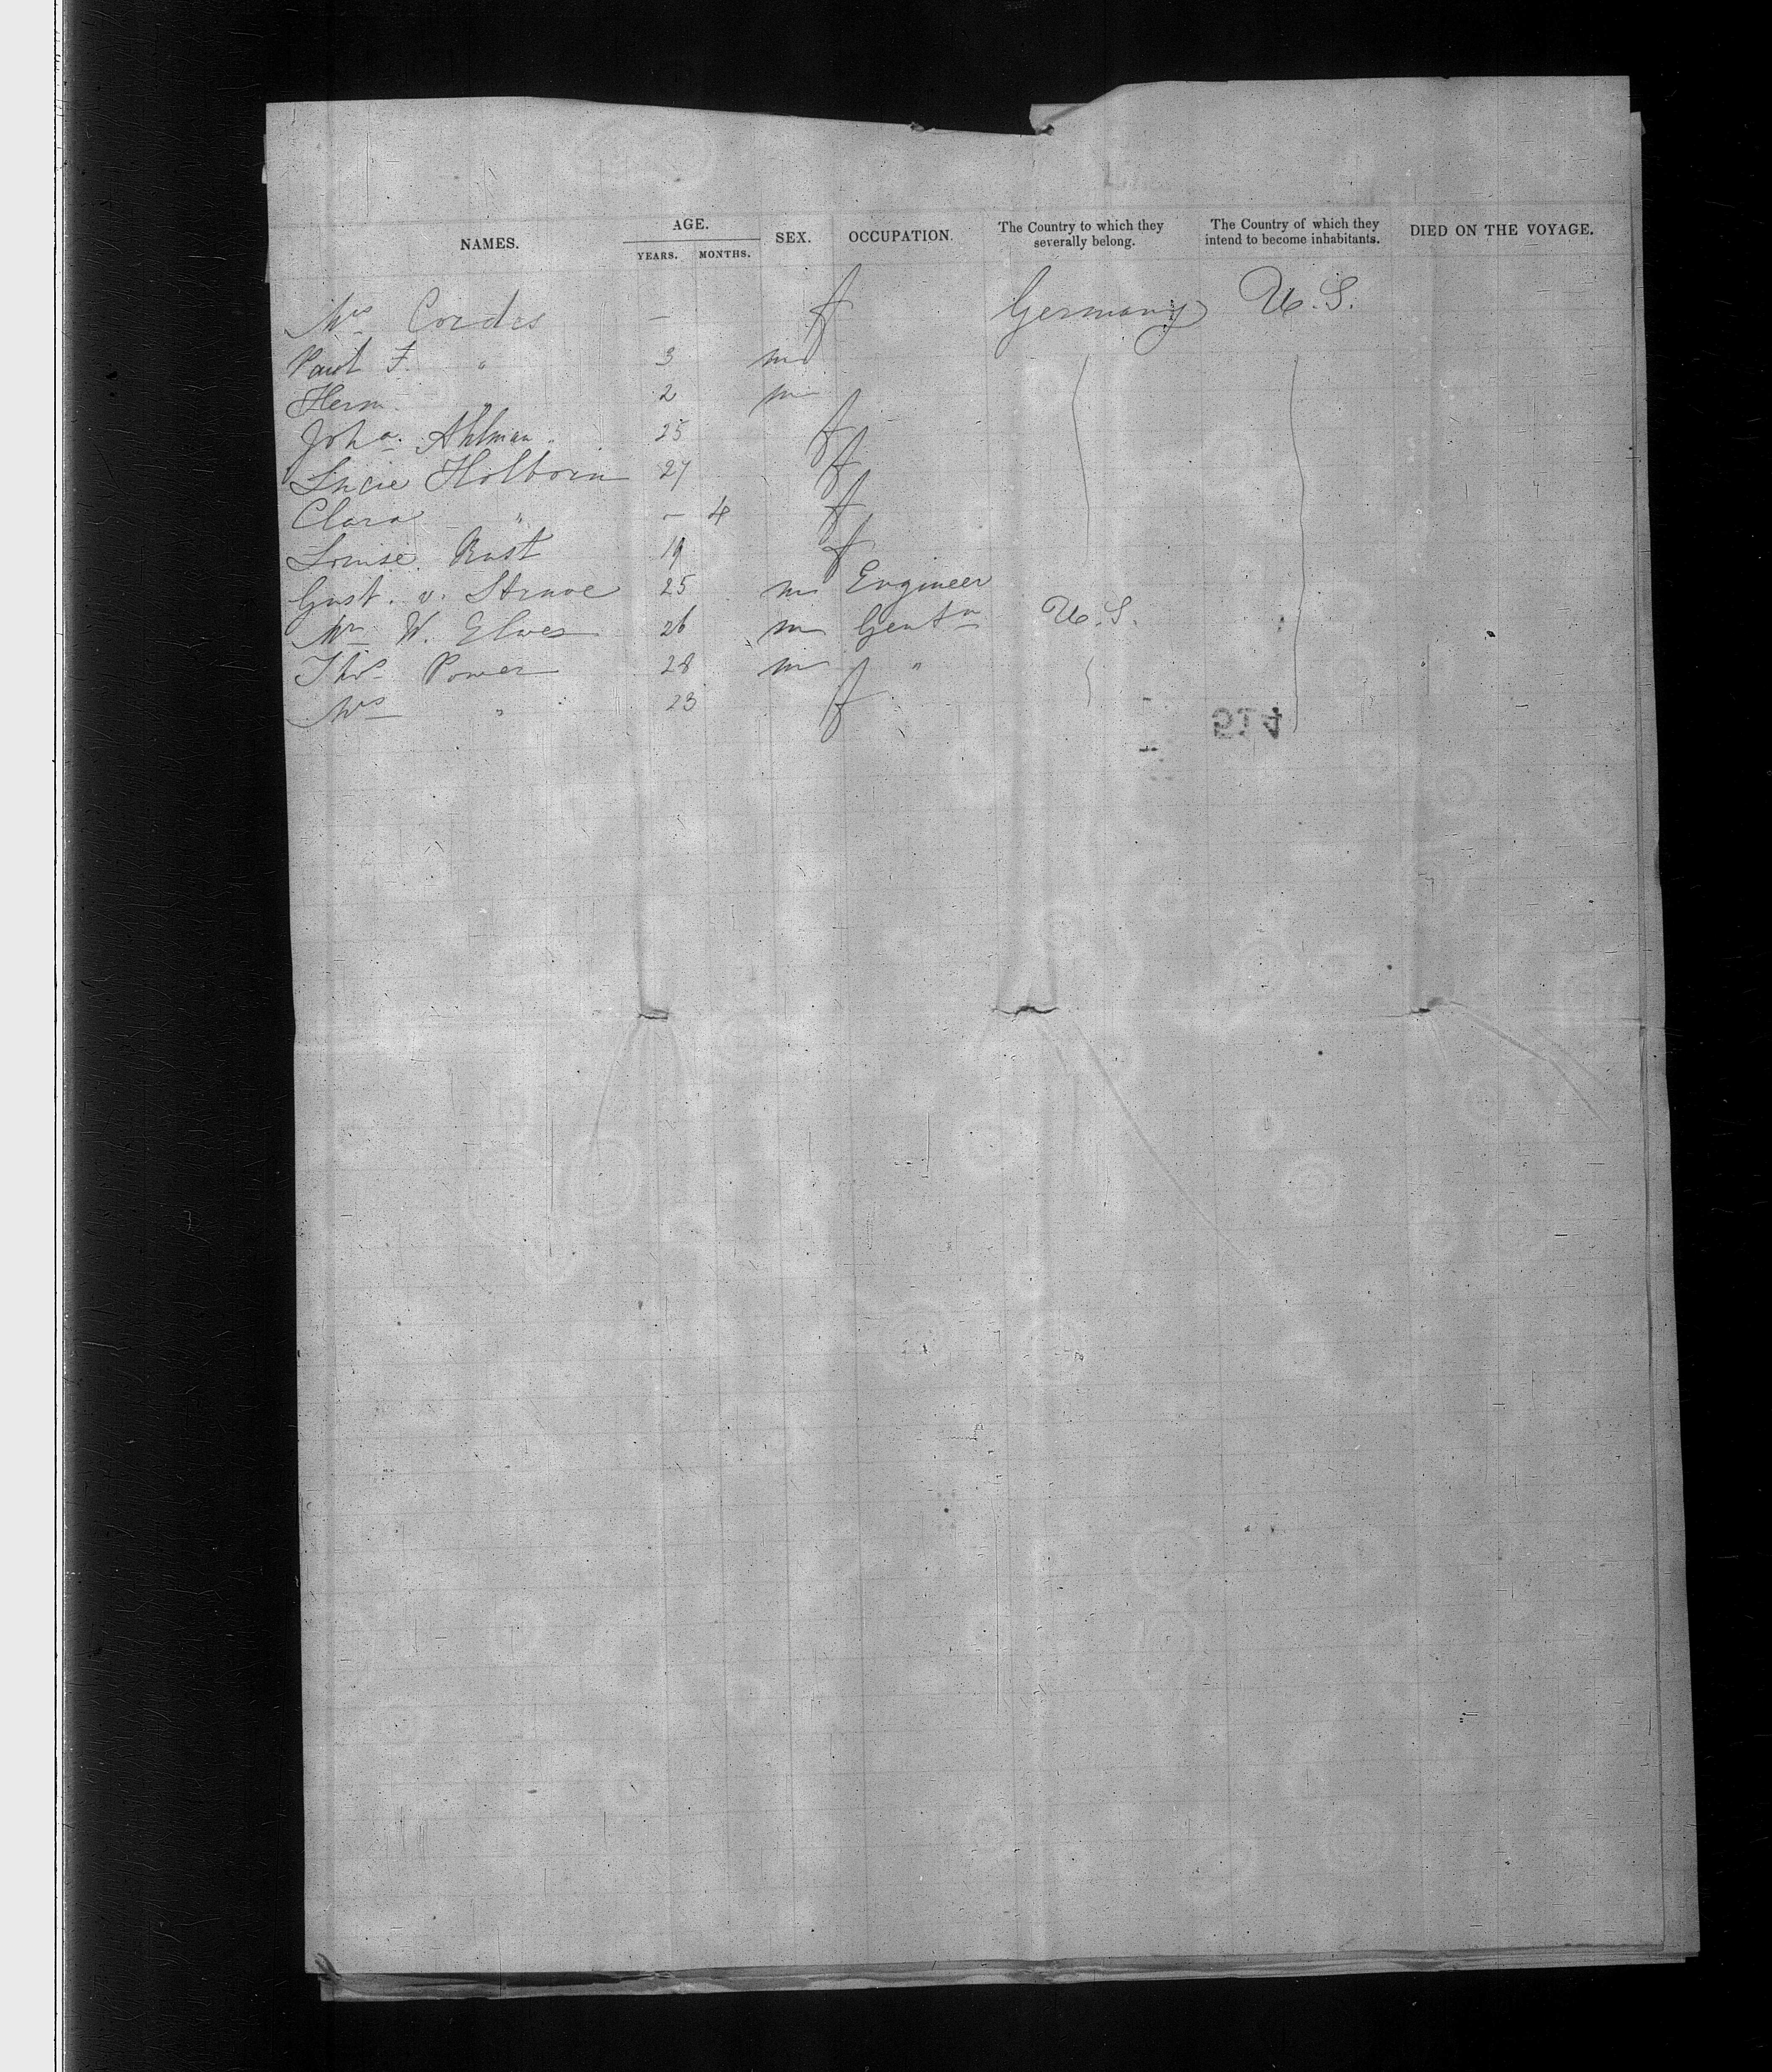 NAMES. AGE. YEARS. MONTHS. SEX. OCCUPATION. The Country to which they severally belong. The Country of which they intend to become inhabitants. DIED ON THE VOYAGE.
Mrs Cordes — f Germany U.S.
Paul F. " 3 m
Herm. " 2 m
Joha. Ahlman. 25 f
Lucie Holborn 27 f
Clara " – 4 f
Louise Rust 19 f
Gust. v. Struve 25 m Engineer
Mr W. Elwes 26 m Gentn U.S.
Thos Power 28 m "
Mrs " 23 f